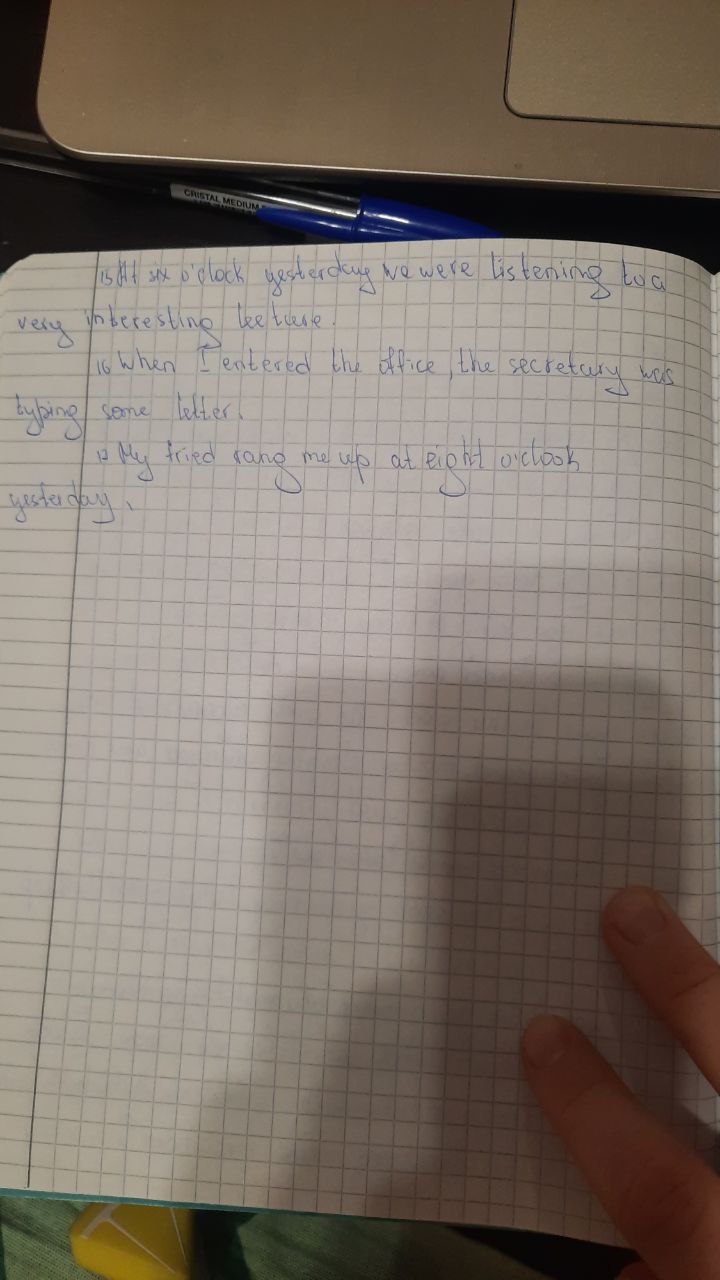 CRISTAL MEDIUM
15 At six o'clock yesterday we were listening to a
very interesting lecture.
16 When I entered the office, the secretary was
typing some letter.
17 My fried rang me up at eight o'clook
yesterday.